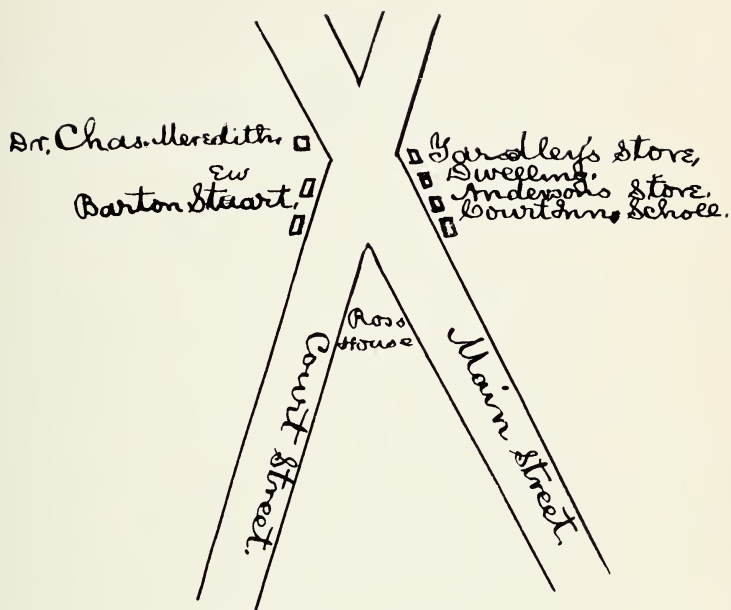 Dr. Chas. Meredith.
Ew
Barton Stuart.
Yardley's Store,
Dwelling.
Anderson's Store.
Court Inn, Scholl.
Ross
House
Court Street.
Main Street.